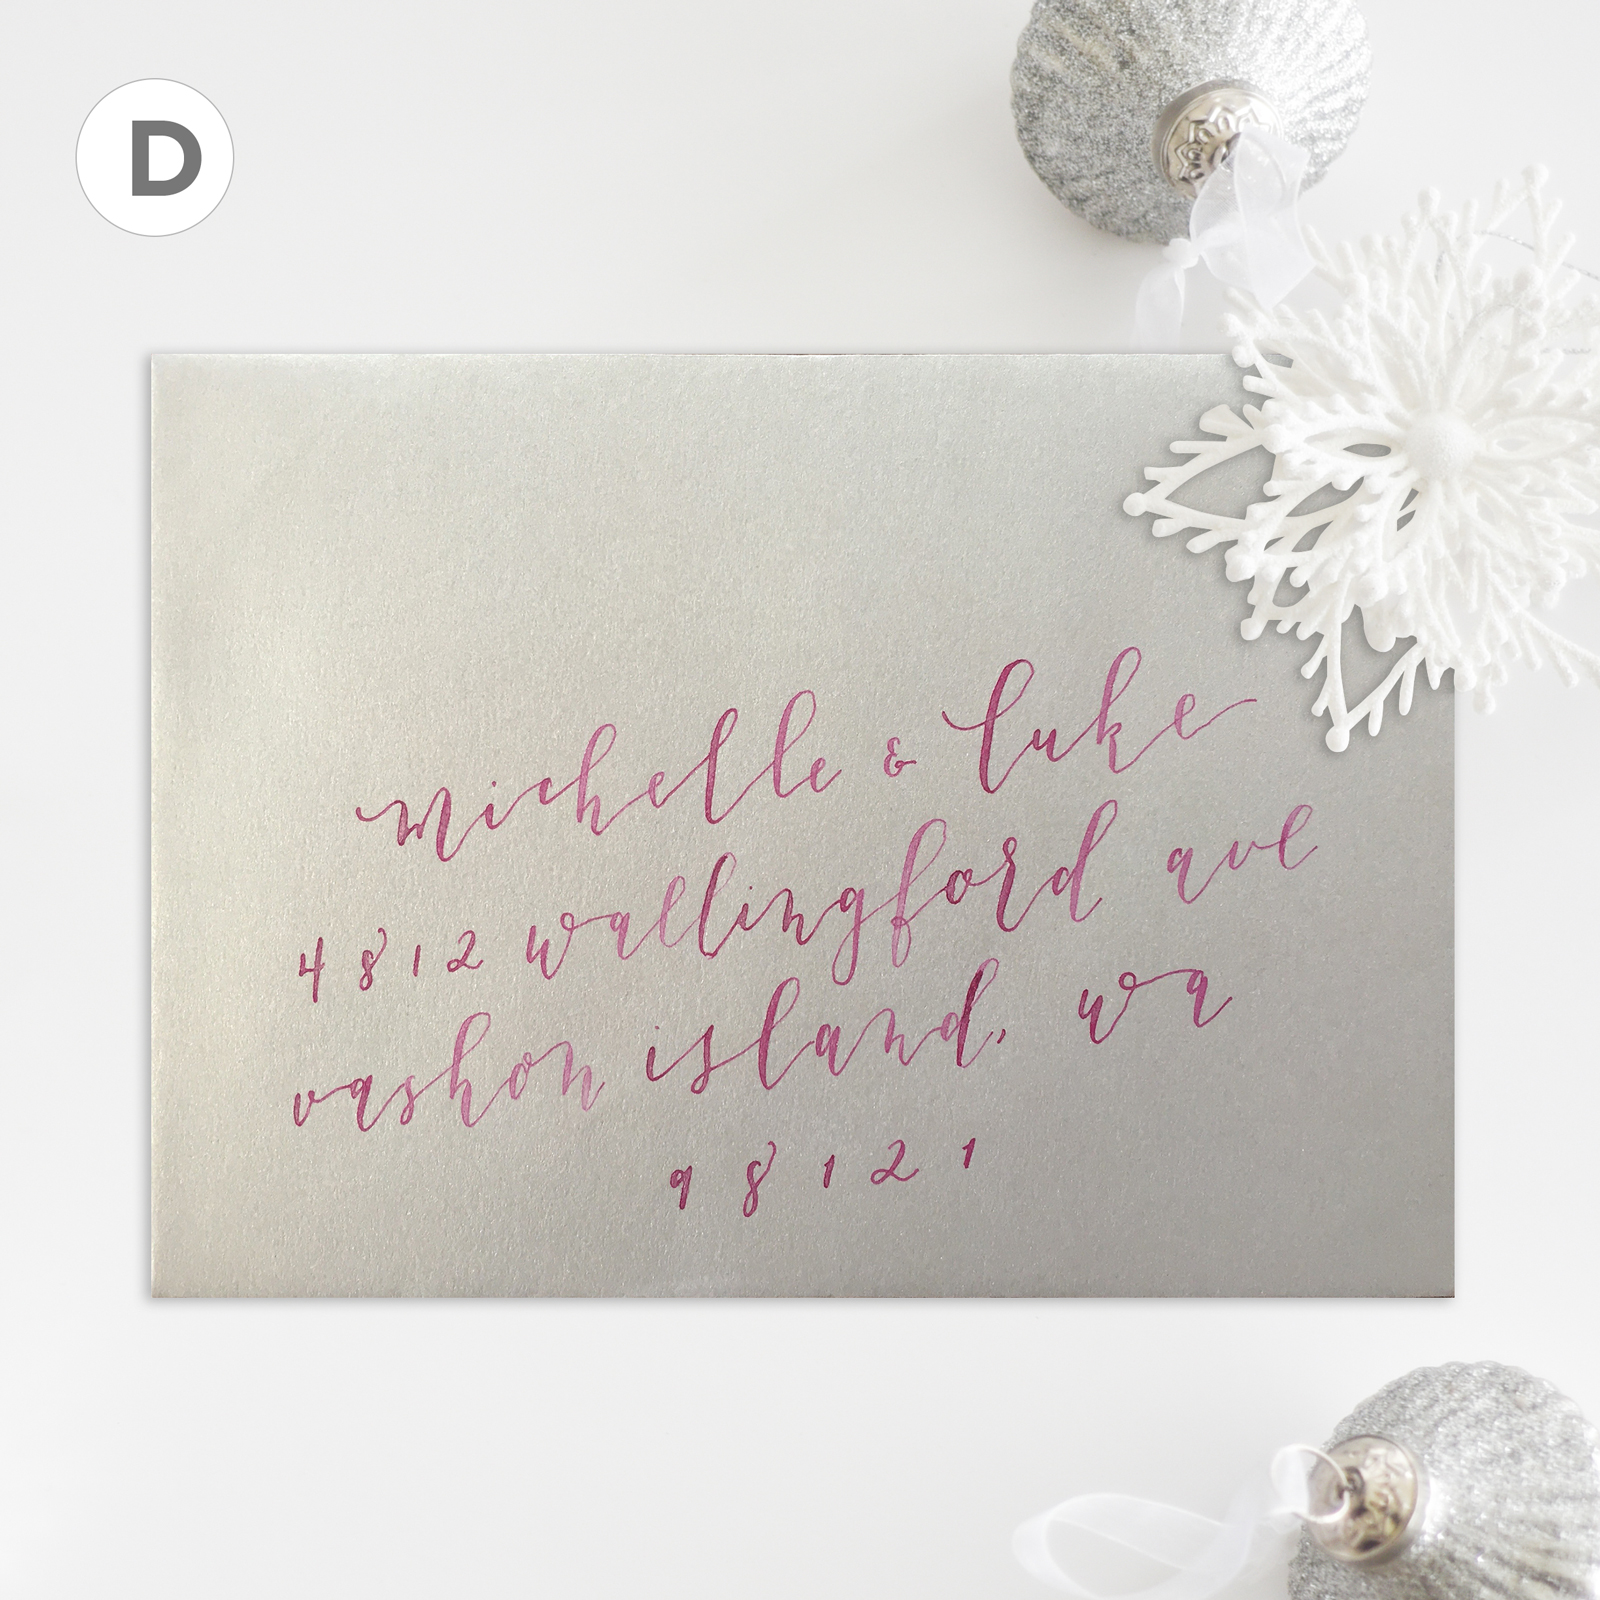 D
michelle & luke
4812 wallingford ave
vashon island, wa
98121